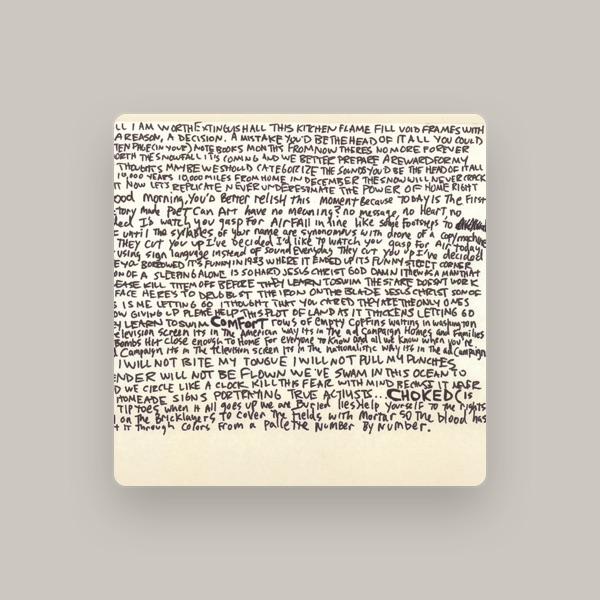 LL I AM WORTH EXTINGUISH ALL THIS KITCHEN FLAME FILL VOID FRAMES WITH
A REASON, A DECISION. A MISTAKE YOU'D BE THE HEAD OF IT ALL YOU COULD
TEN PAGE (IN YOUR) NOTEBOOKS MONTHS FROM NOW THERES NO MORE FOREVER
ORTH THE SNOWFALL IT IS COMING AND WE BETTER PREPARE A REWARD FOR MY
THOUGHTS MAYBE WE SHOULD CATEGORIZE THE SOUNDS YOU'D BE THE HEAD OF IT ALL
10,000 MILES FROM HOME IN DECEMBER THE SNOW WILL NEVER CRACK
T NOW LETS REPLICATE NEVER UNDERESTIMATE THE POWER OF HOME RIGHT
ood morning, You'd Better relish this moment Because TODAY IS The First
tory made Poet Can Art have no meaning? no message, no Heart no
ded I'd watch you gasp For Air Fall in line like some Footsteps to
E until The syllables of your name are synonomus with drone of a copy machine
THEY CUT YOU UP I've decided I'd like To watch you gasp For Air today
using sign language instead of sound Everyday They cut you up I've decided
EYOU BORROWED IT'S FUNNY IN 1933 WHERE IT ENDED UP ITS FUNNY STREET CORNER
ON OF A SLEEPING ALONE IS SO HARD JESUS CHRIST GOD DAMN IT MAN THAT
EASE KILL THEM OFF BEFORE THEY LEARN TO SWIM THE STARE DOESN'T WORK
FACE HERES TO THE IRON ON THE BLADE JESUS CHRIST SON OF
S IS ME LETTING GO I THOUGHT THAT YOU CARED THEY ARE THE ONLY ONES
OW GIVING UP PLEASE HELP THIS PLOT OF LAND AS IT THICKENS LETTING GO
EY LEARN TO SWIM COMFORT rows of empty Coffins waiting in washington
elevision screen its in The American way its in the ad Campaign Homes and Families
Bombs Hit close enough to Home For everyone to know and all we know when you're
d Campaign its in The television screen its in The nationalistic way its in the ad Campaign
I WILL NOT BITE MY TONGUE I WILL NOT PULL MY PUNCHES
ENDER WILL NOT BE FLOWN WE'VE SWAM IN THIS OCEAN TO
D WE CIRCLE LIKE A CLOCK KILL THIS FEAR WITH MIND BECAUSE IT NEVER
HOMEADE SIGNS PORTRAYING TRUE ACTIVISTS... CHOKED (IS
TIPTOES when it All goes up we are Buried lies Help yourself to the rights
l on the Bricklayers to cover the Fields with Mortar so The blood has
t it Through colors From a Pallette Number By Number.